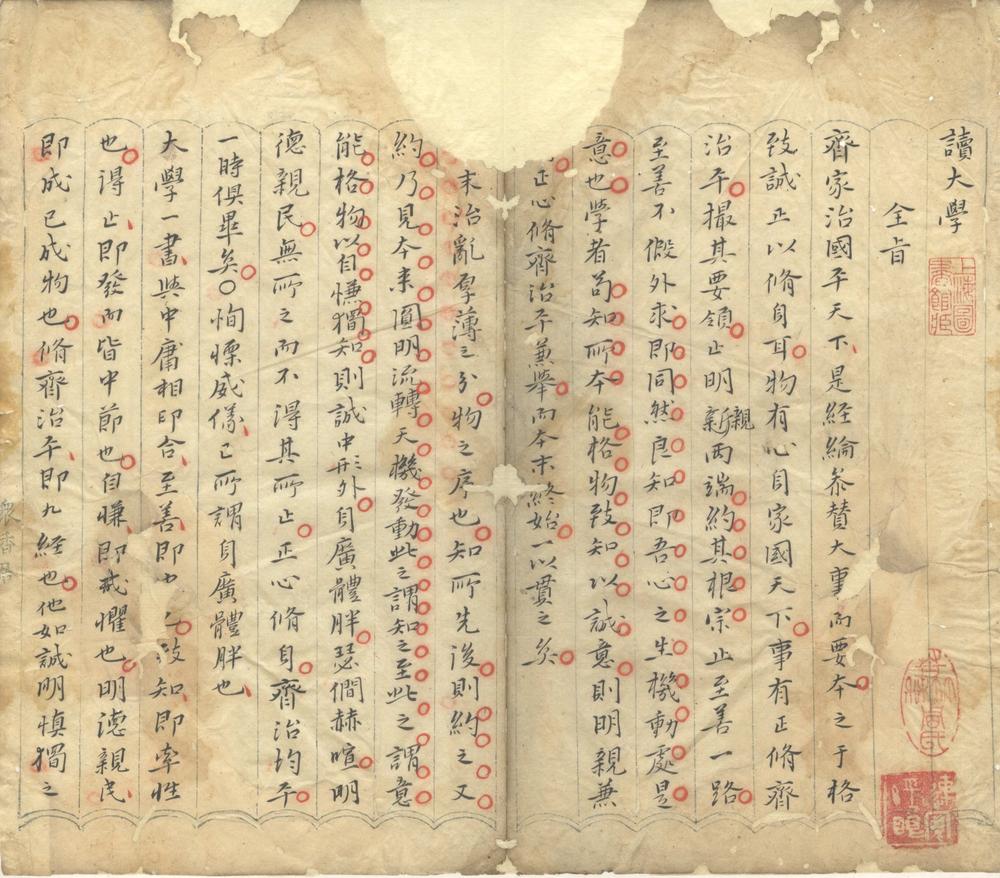 讀大學
全旨
齊家治國平天下是經綸叅贊大事而要本之于格
致誠正以脩身耳物有心身家國天下事有正脩齊
治平撮其要領止明新親两端約其根宗止至善一路
至善不假外求即同然良知即吾心之生機動處是
意也學者苟知所本能格物致知以誠意則明親兼
正心脩齊治平兼舉而本末終始一以貫之矣
末治亂厚薄之分物之序也知所先後則約之又
約乃見本来圓明流轉天機發動此之謂知之至此之謂意
能格物以自慊獨知則誠中形外身廣體胖瑟僩赫喧明
德親民無所之而不得其所止正心脩身齊治均平
一時俱畢矣〇恂慄威儀已所謂身廣體胖也
大學一書與中庸相印合至善即 致知即率性
也得止即發而皆中節也自慊即戒懼也明德親民
即成己成物也脩齊治平即九經也他如誠明慎獨之
上海圖書館藏